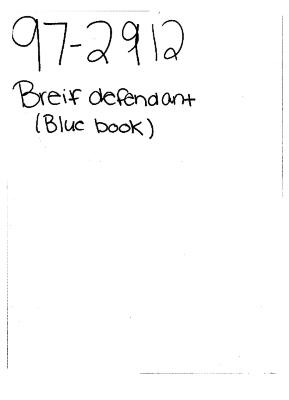 97-2912
Breif defendant
(Blue book)